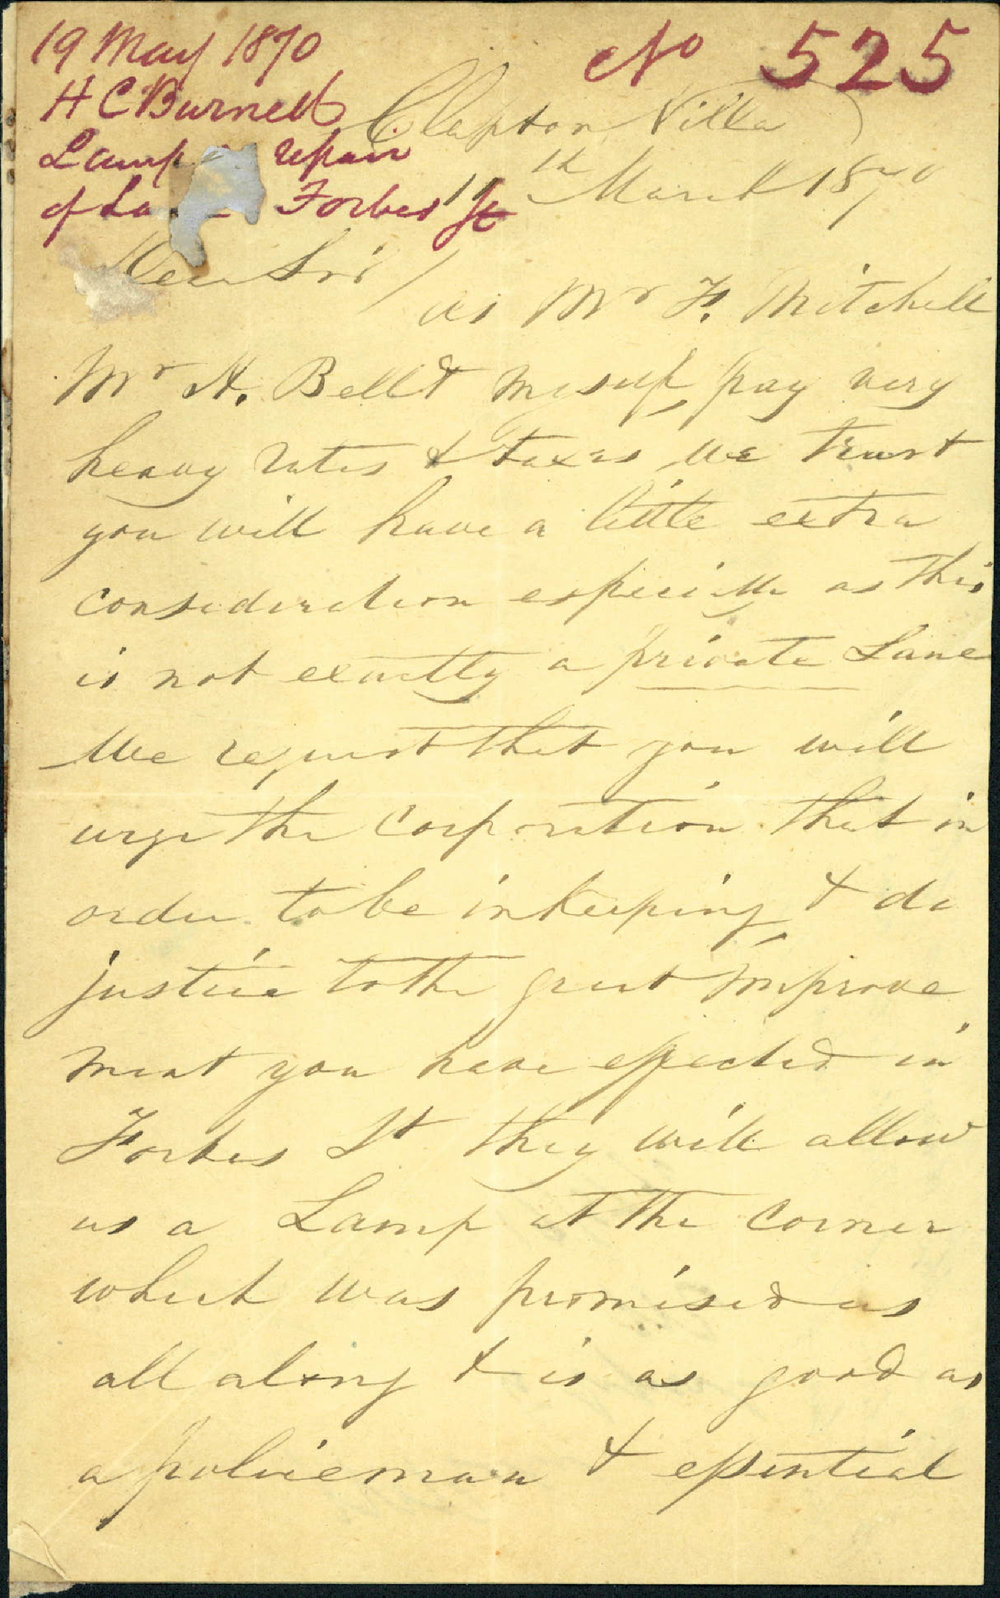 19 May 1870
No 525
H C Burnell
Lamp repair
of La Forbes St
Clapton Villa
March 1870
Dear Sir
as Mr F. Mitchell
Mr H. Bell & myself, pay very
heavy rates & taxes, we trust
you will have a little extra
consideration especially as this
is not exactly a private Lane
We request that you will
urge the Corporation that in
order to be in keeping & do
justice to the great improve
ment you have effected in
Forbes St they will allow
us a Lamp at the corner
which was promised us
all along & is as good as
a policeman & essential